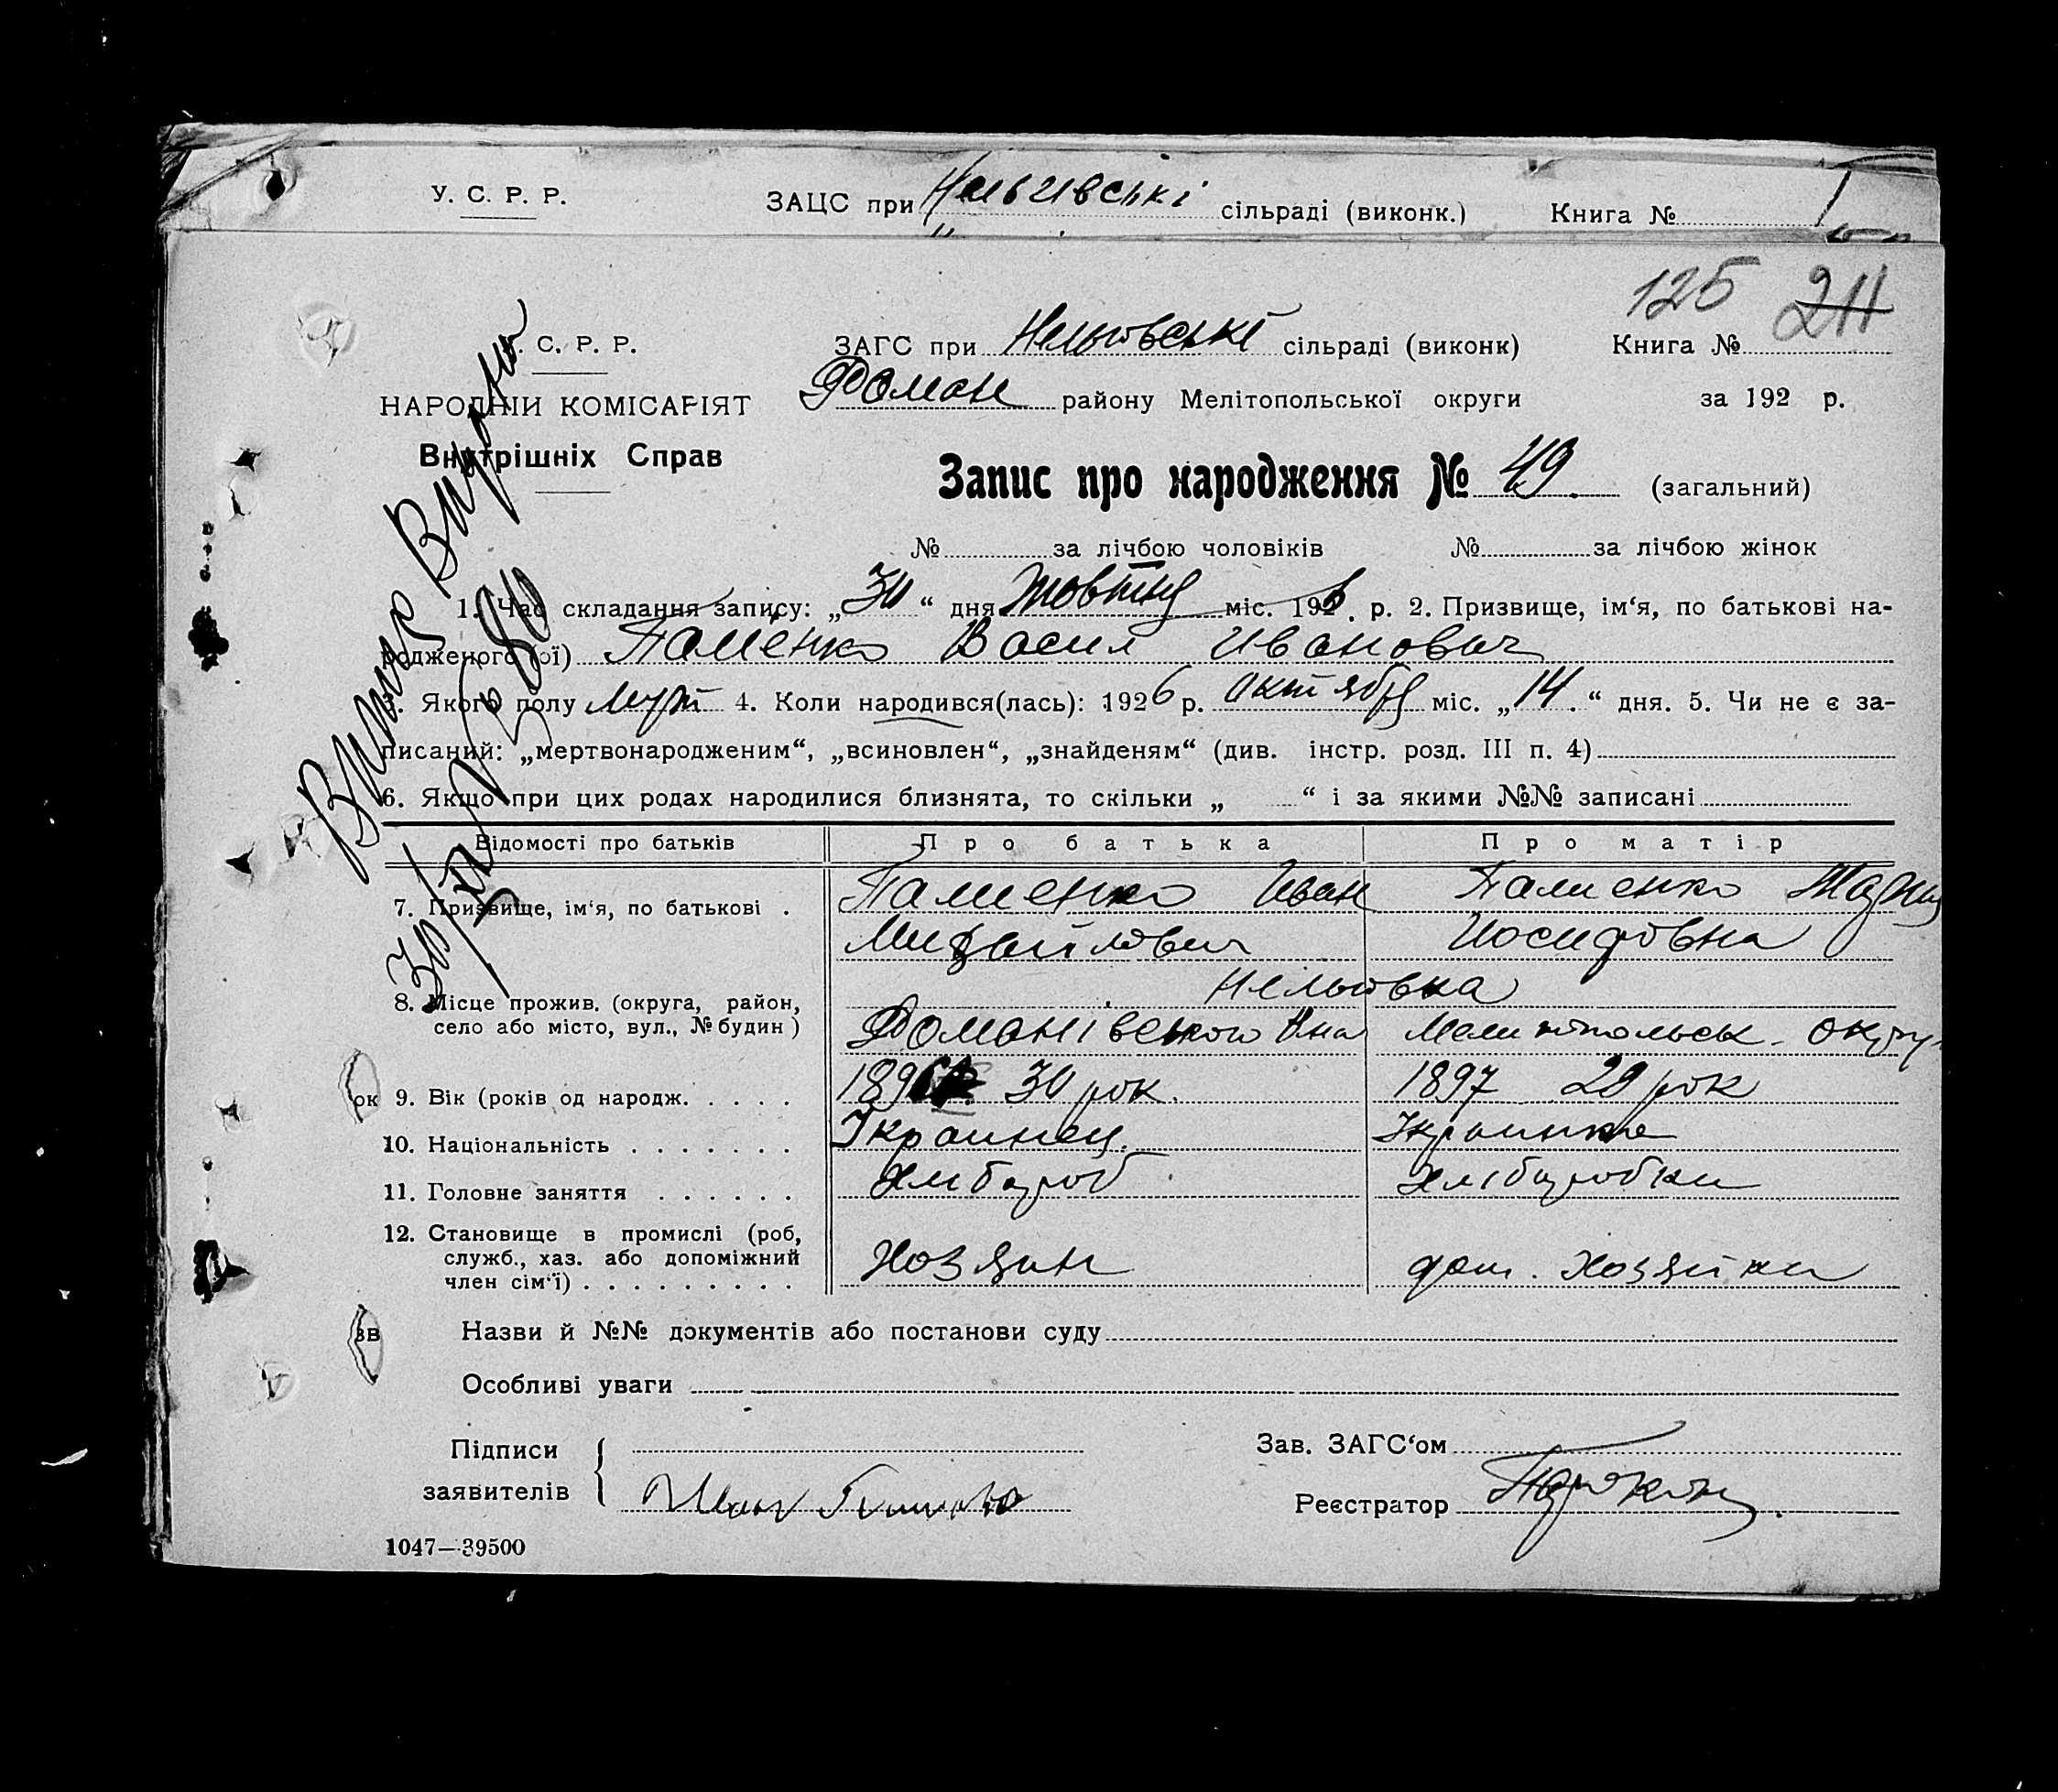 У. С. Р. Р. ЗАЦС при сільраді (виконк.) Книга №
125 211
С. Р. Р. ЗАГС при Нельговські сільраді (виконк) Книга №
НАРОДНІЙ КОМІСАРІЯТ Роман району Мелітопольської округи за 192 р.
Внутрішніх Справ
Запис про народження № 49. (загальний)
№ за лічбою чоловіків № за лічбою жінок
1. Час складання запису: „30“ дня Жовтня міс. 1926. р. 2. Призвище, ім‘я, по батькові на-
родженого (ої) Пашенко Васил Иванович
3. Якого полу муж 4. Коли народився(лась): 1926 р. октября міс. „14.“ дня. 5. Чи не є за-
писаний: „мертвонародженим“, „всиновлен“, „знайденям“ (див. інстр. розд. III п. 4)
6. Якщо при цих родах народилися близнята, то скільки „ “ і за якими №№ записані
Відомості про батьків Про батька Про матір
7. Призвище, ім‘я, по батькові . Пашенко Иван Пашенко
Михайлович Иосифовна
8. Місце прожив. (округа, район, Нельговка
село або місто, вул., № будин) Романівского Мелитопольск. округ
9. Вік (років од народж. . . . . . 30 рок. 1897 29 рок
10. Національність . . . . . . . Украинец. Украинка
11. Головне заняття . . . . . . Хлібороб Хліборобка
12. Становище в промислі (роб,
служб., хаз. або допоміжний Хозяин дом. Хозяйка
член сім‘ї) . . . . . . . . .
Назви й №№ документів або постанови суду
Особливі уваги
Підписи Зав. ЗАГС‘ом
заявителів Иван Реєстратор
1047—39500